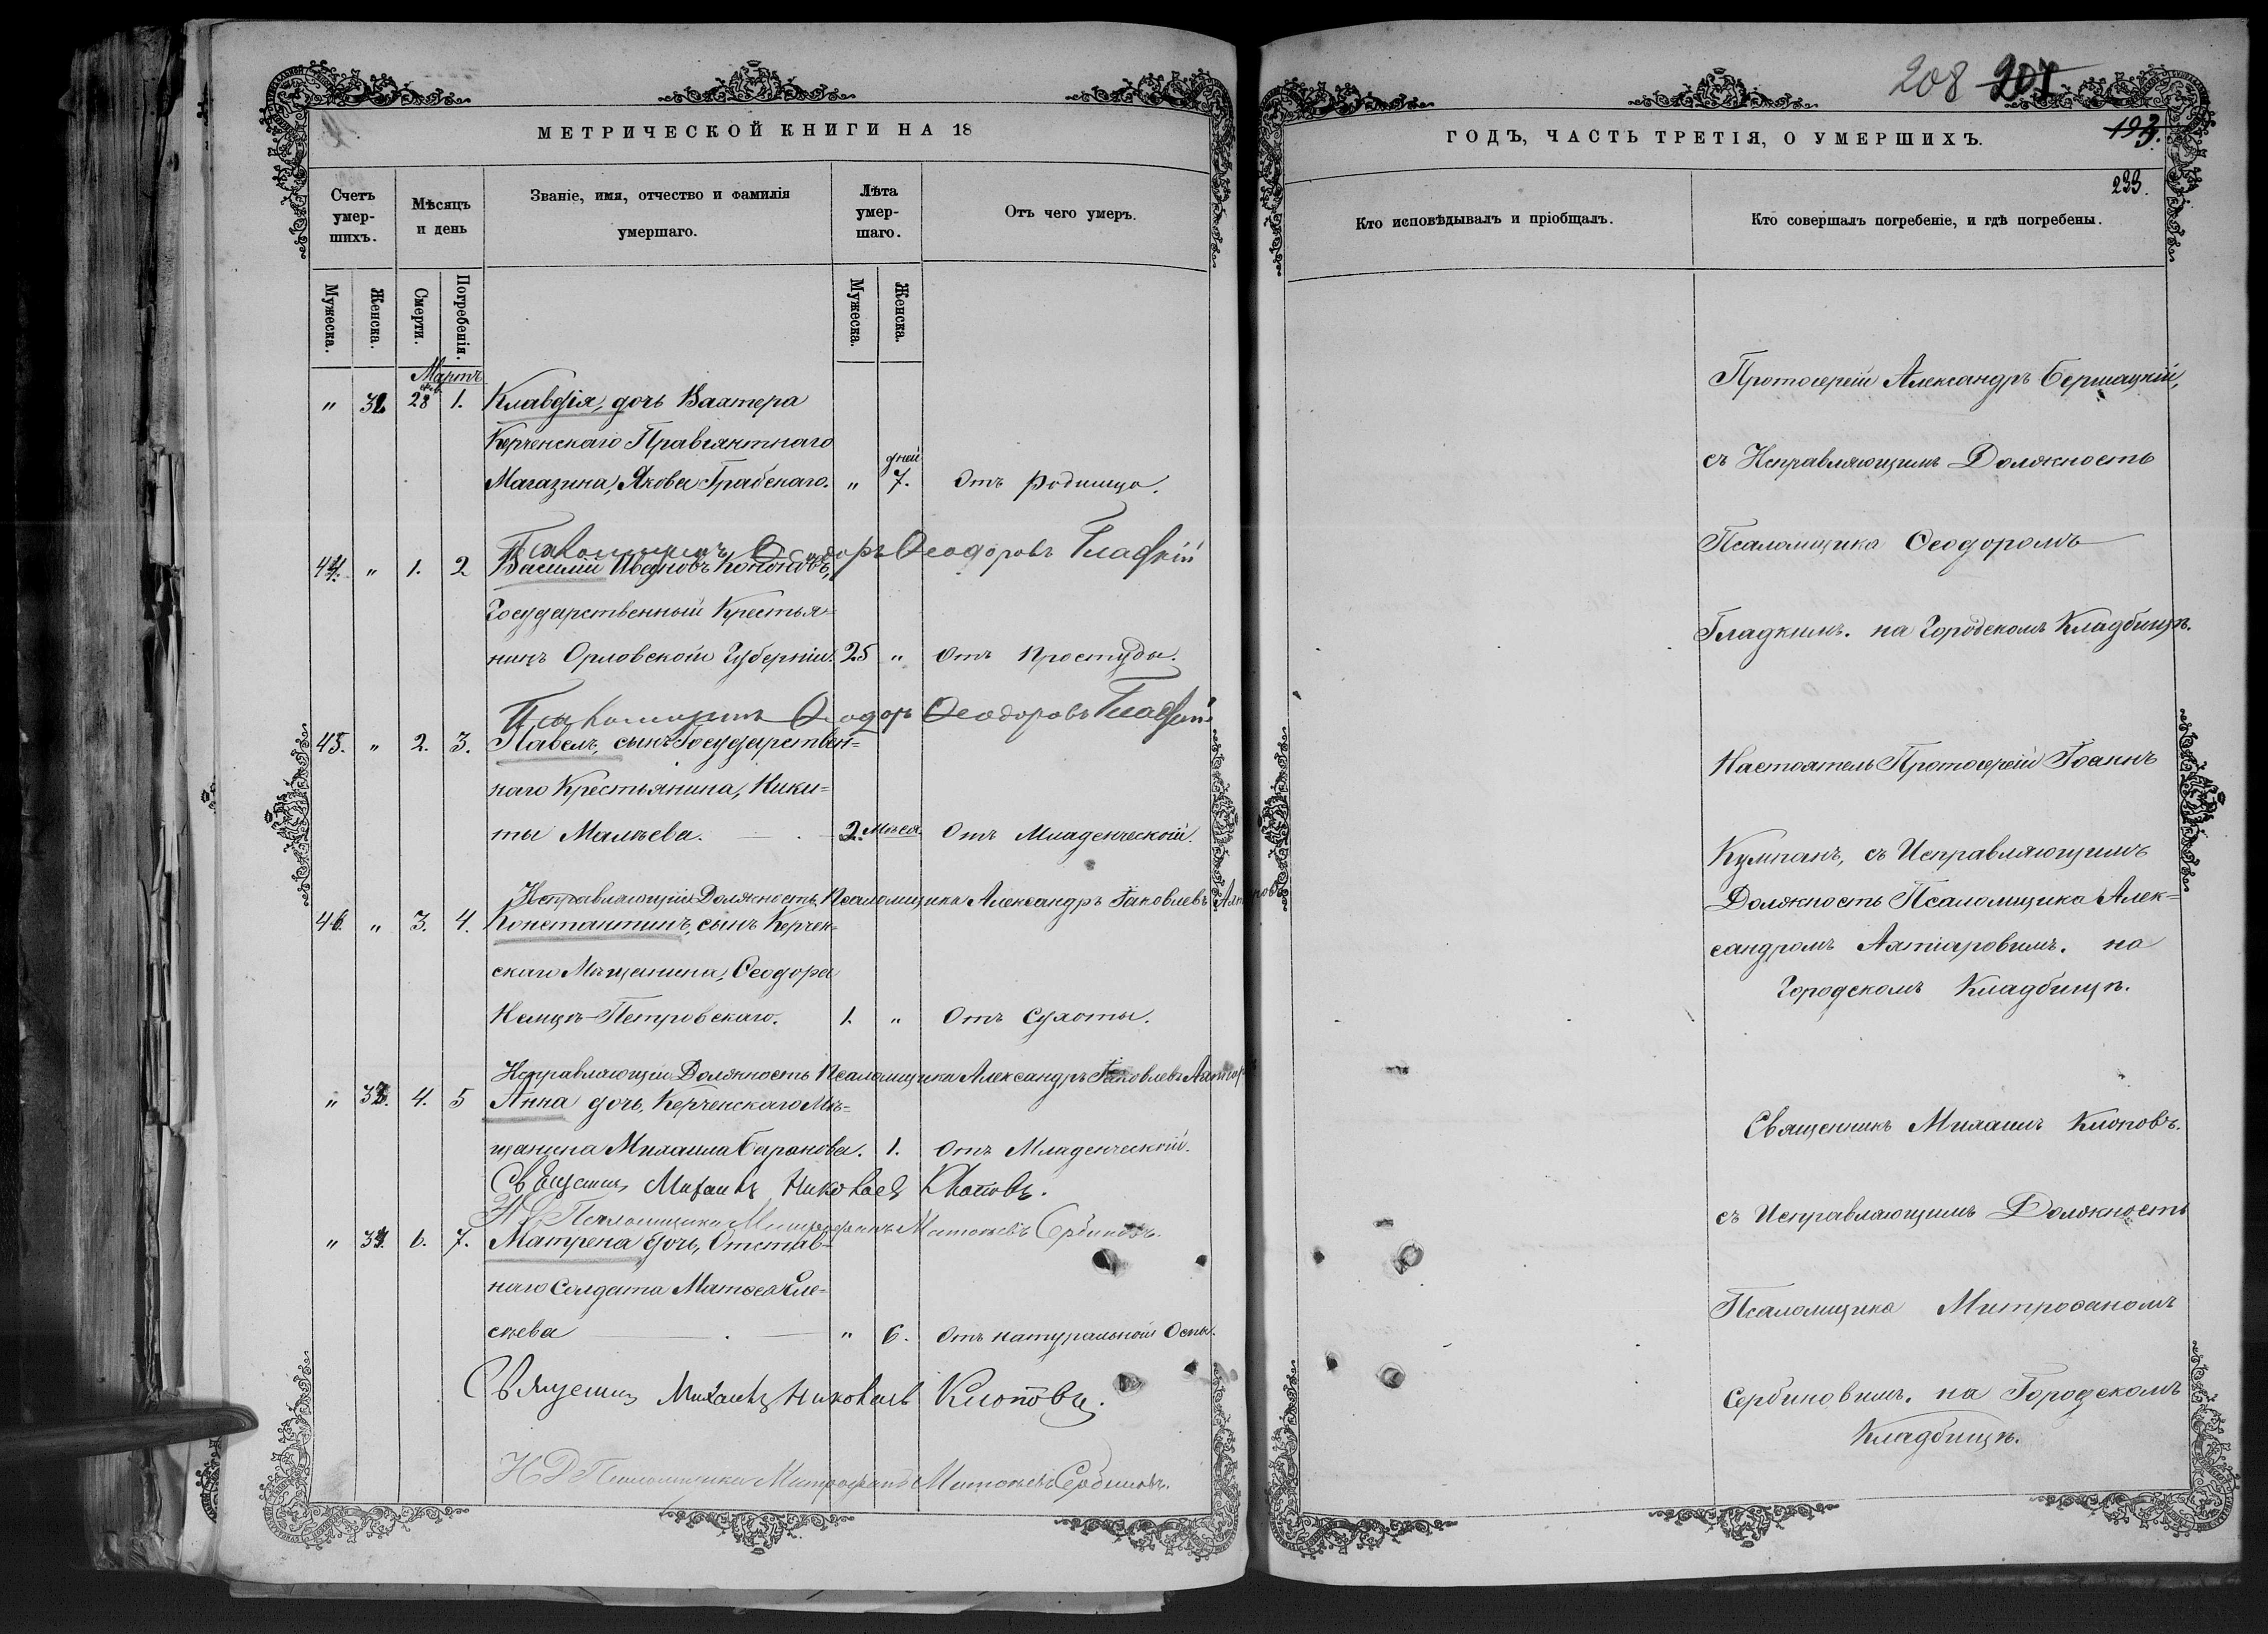 МЕТРИЧЕСКОЙ КНИГИ НА 18
Счетъ умер-шихъ.
Мѣсяцъ и день
Званіе, имя, отчество и фамилія умершаго.
Лѣта умер-шаго.
Отъ чего умеръ.
Мужеска.
Женска.
Смерти.
Погребенія.
Мужеска.
Женска.
Мартъ
" 32 28 1. Клавдія, дочь Вахтера
Керченскаго Провіянтнаго
дней
Магазина, Якова Грабскаго. " 7. Отъ родимца.
Псаломщикъ Ѳеодоръ Ѳеодоровъ Гладкій
44. " 1. 2 Василій Ивановъ Кононовъ,
Государственный Крестья=
нинъ Орловской Губерніи. 25 " Отъ простуды.
Псаломщикъ Ѳеодоръ Ѳеодоровъ Гладкій
45. " 2. 3. Павелъ, сынъ Государствен=
наго Крестьянина, Ники=
ты Малѣева. 2. Мѣся. Отъ Младенческой.
Исправляющій Должность Псаломщика Александръ Іаковлевъ
46. " 3. 4. Константинъ, сынъ Керчен=
скаго Мѣщанина, Ѳеодора
Петровскаго. 1. " Отъ Сухоты.
Исправляющій Должность Псаломщика Александръ Іаковлевъ
" 33. 4. 5 Анна дочь, Керченскаго Мѣ=
щанина Михаила Баранова. 1. Отъ Младенческой.
Священникъ Михаилъ Николаевъ Клоповъ.
И Д Псаломщика Митрофанъ Матѳеевъ Сербиновъ.
" 34. 6. 7. Матрена дочь, Отстав=
наго Солдата Матѳея Еле=
сѣева " 6. Отъ натуральной Оспы.
Священникъ Михаилъ Николаевъ Клоповъ.
И Д Псаломщика Митрофанъ Матѳеевъ Сербиновъ.
208 207
193.
ГОДЪ, ЧАСТЬ ТРЕТІЯ, О УМЕРШИХЪ.
233.
Кто исповѣдывалъ и пріобщалъ.
Кто совершалъ погребеніе, и гдѣ погребены.
Протоіерей Александръ Бершацкій,
съ Исправляющимъ Должность
Псаломщика Ѳеодоромъ
Гладкимъ. на Городскомъ Кладбищѣ.
Настоятель Протоіерей Іоаннъ
Кумпанъ, съ Исправляющимъ
Должность Псаломщика Алек=
сандромъ Ахтіаровымъ. на
Городскомъ Кладбищѣ.
Священникъ Михаилъ Клоповъ.
съ Исправляющимъ Должность
Псаломщика Митрофаномъ
Сербиновымъ. на Городскомъ
Кладбищѣ.